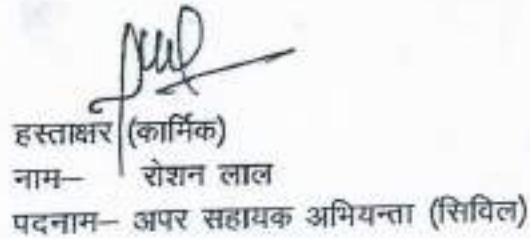 हस्ताक्षर (कार्मिक)
नाम— रोशन लाल
पदनाम— अपर सहायक अभियन्ता (सिविल)